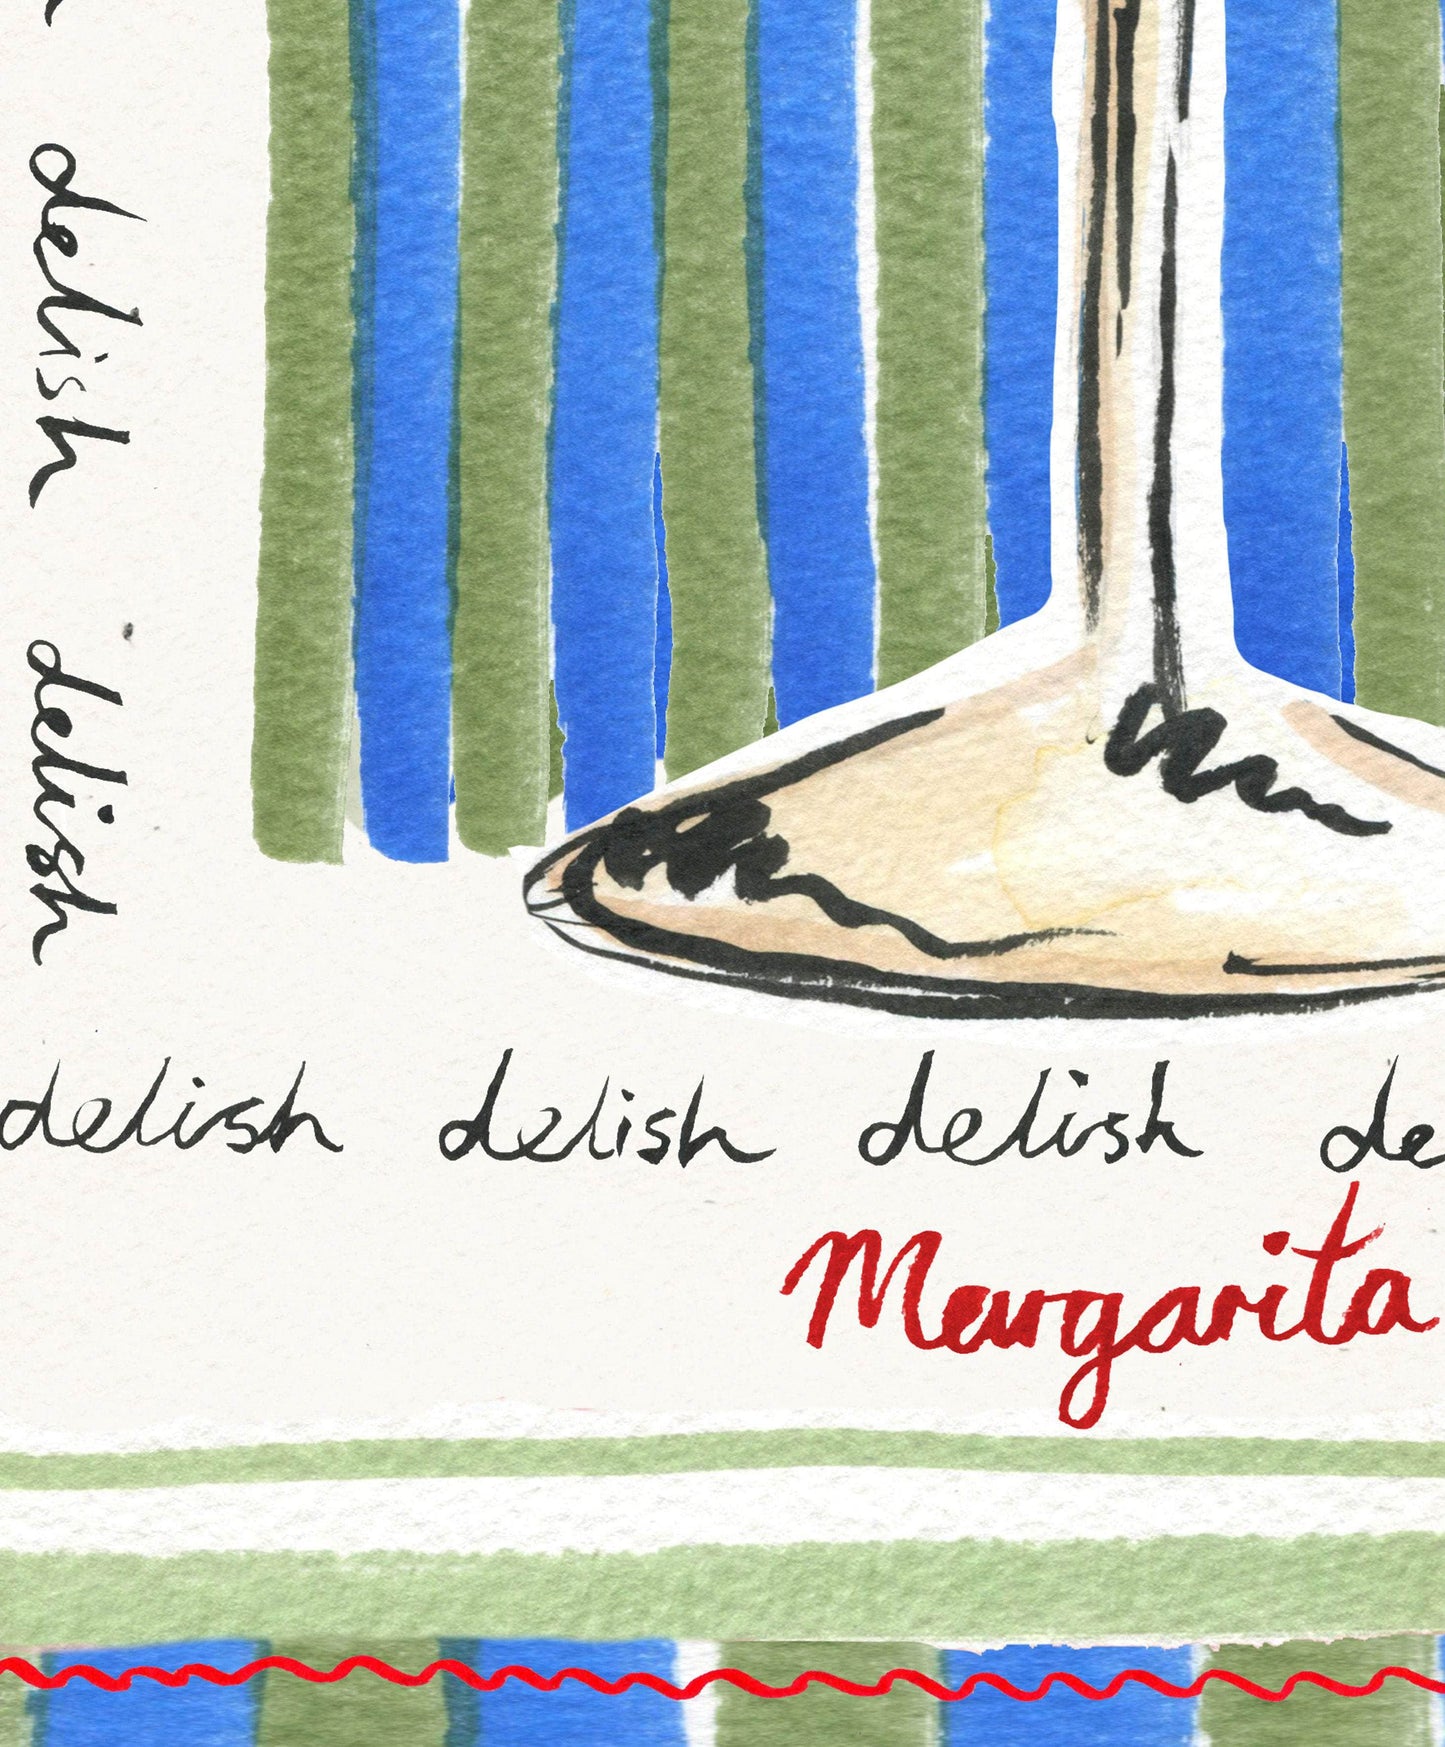 delish
delish
delish delish delish de
Margarita